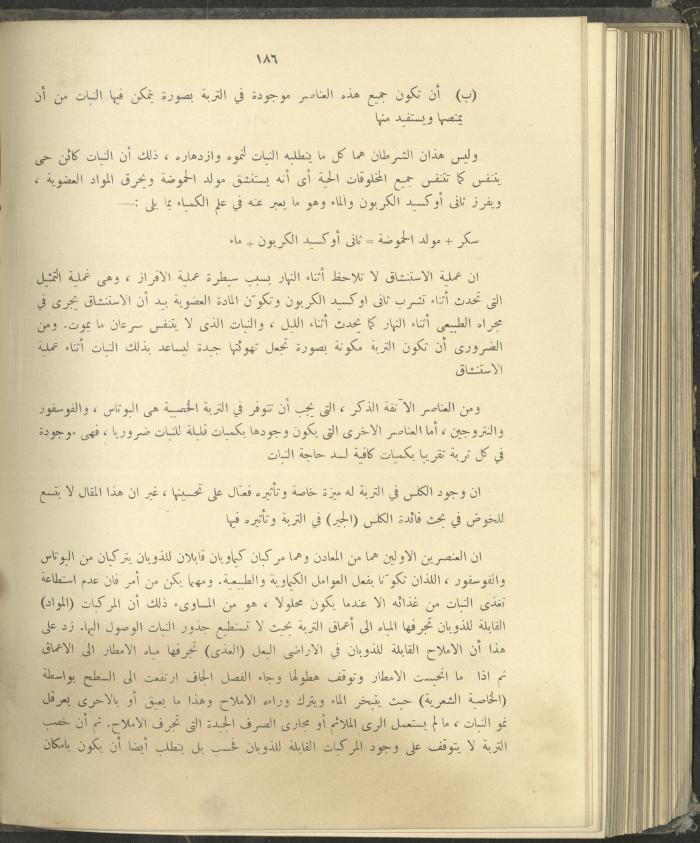 ١٨٦
(ب) أن تكون جميع هذه العناصر موجودة في التربة بصورة يتمكن فيها النبات من أن
يمتصها ويستفيد منها
وليس هذان الشرطان هما كل ما يتطلبه النبات لنموه وازدهاره ، ذلك أن النبات كائن حى
يتنفس كما تتنفس جميع المخلوقات الحية أى أنه يستنشق مولد الحموضة ويحرق المواد العضوية ،
ويفرز ثانى أوكسيد الكربون والماء وهو ما يعبر عنه في علم الكمياء بما يلى :—
سكر + مولد الحموضة = ثانى أوكسيد الكربون + ماء
ان عملية الاستنشاق لا تلاحظ أثناء النهار بسبب سيطرة عملية الافراز ، وهى عملية التمثيل
التى تحدث أثناء تشرب ثانى اوكسيد الكربون وتكوّن المادة العضوية بيد أن الاستنشاق يجرى في
مجراه الطبيعى أثناء النهار كما يحدث أثناء الليل ، والنبات الذى لا يتنفس سرعان ما يموت. ومن
الضرورى أن تكون التربة مكونة بصورة تجعل تهوئتها جيدة ليساعد بذلك النبات أثناء عملية
الاستنشاق
ومن العناصر الآنفة الذكر ، التى يجب أن تتوفر في التربة الخصيبة هى البوتاس ، والفوسفور
والنتروجين ، أما العناصر الاخرى التى يكون وجودها بكميات قليلة للنبات ضروريا ، فهى موجودة
في كل تربة تقريبا بكميات كافية لسد حاجة النبات
ان وجود الكلس في التربة له ميزة خاصة وتأثيره فعّال على تحسينها ، غير ان هذا المقال لا يتسع
للخوض في بحث فائدة الكلس (الجير) في التربة وتأثيره فيها
ان العنصرين الاولين هما من المعادن وهما مركبان كيماويان قابلان للذوبان يتركبان من البوتاس
والفوسفور ، اللذان تكوّنا بفعل العوامل الكيماوية والطبيعية. ومهما يكن من أمر فان عدم استطاعة
تغذى النبات من غذائه الا عندما يكون محلولا ، هو من المساوىء ذلك أن المركبات (المواد)
القابلة للذوبان تجرفها المياه الى أعماق التربة بحيث لا تستطيع جذور النبات الوصول اليها. زد على
هذا أن الاملاح القابلة للذوبان في الاراضى البعل (العذى) تجرفها مياه الامطار الى الاعماق
ثم اذا ما انحبست الامطار وتوقف هطولها وجاء الفصل الجاف ارتفعت الى السطح بواسطة
(الخاصية الشعرية) حيث يتبخر الماء ويترك وراءه الاملاح وهذا ما يعيق أو بالاحرى يعرقل
نمو النبات ، ما لم يستعمل الرى الملائم أو مجارى الصرف الجيدة التى تجرف الاملاح. ثم أن خصب
التربة لا يتوقف على وجود المركبات القابلة للذوبان فحسب بل يتطلب أيضا أن يكون بامكان